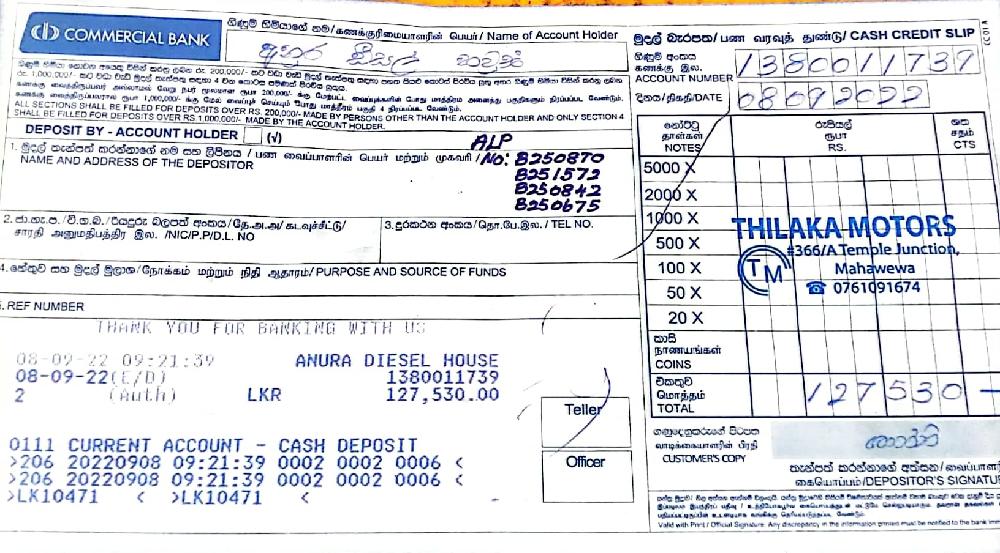 COMMERCIAL BANK
ගිණුම් හිමියාගේ නම/கணக்குரிமையாளரின் பெயர்/ Name of Account Holder
අනුර ඩීසල් හවුස්
මුදල් බැරපත/பண வரவுத் துண்டு/ CASH CREDIT SLIP
ගිණුම් අංකය
கணக்கு இல.
ACCOUNT NUMBER 1380011739
දිනය/திகதி/DATE 08092022
ALL SECTIONS SHALL BE FILLED FOR DEPOSITS OVER RS. 200,000/- MADE BY PERSONS OTHER THAN THE ACCOUNT HOLDER AND ONLY SECTION 4
SHALL BE FILLED FOR DEPOSITS OVER RS.1,000,000/- MADE BY THE ACCOUNT HOLDER.
DEPOSIT BY - ACCOUNT HOLDER (√)
1. මුදල් තැන්පත් කරන්නාගේ නම සහ ලිපිනය / பண வைப்பாளரின் பெயர் மற்றும் முகவரி /
NAME AND ADDRESS OF THE DEPOSITOR
ALP
No: B250870
B251572
B250842
B250675
නෝට්ටු
தாள்கள்
NOTES
රුපියල්
ரூபா
RS.
ශත
சதம்
CTS
5000 X
2000 X
1000 X
500 X
100 X
50 X
20 X
THILAKA MOTORS
TM
#366/A Temple Junction,
Mahawewa
☎ 0761091674
2. ජා.හැ.ප./වි.ග.බ./රියදුරු බලපත් අංකය/தே.அ.அ/கடவுச்சீட்டு/
சாரதி அனுமதிபத்திர இல. /NIC/P.P/D.L. NO
3. දුරකථන අංකය/தொ.பே.இல./ TEL NO.
4. හේතුව සහ මුදල් මූලාශ්‍ර/நோக்கம் மற்றும் நிதி ஆதாரம்/ PURPOSE AND SOURCE OF FUNDS
REF NUMBER
THANK YOU FOR BANKING WITH US
08-09-22 09:21:39 ANURA DIESEL HOUSE
08-09-22(E/D) 1380011739
2 (Auth) LKR 127,530.00
0111 CURRENT ACCOUNT - CASH DEPOSIT
>206 20220908 09:21:39 0002 0002 0006 <
>206 20220908 09:21:39 0002 0002 0006 <
>LK10471 < >LK10471 <
Teller
Officer
කාසි
நாணயங்கள்
COINS
එකතුව
மொத்தம்
TOTAL
127530 -
ගනුදෙනුකරුගේ පිටපත
வாடிக்கையாளரின் பிரதி
CUSTOMER'S COPY
තැන්පත් කරන්නාගේ අත්සන/வைப்பாளர்
கையொப்பம்/DEPOSITOR'S SIGNATU
Valid with Print / Official Signature. Any discrepancy in the information printed must be notified to the bank imm